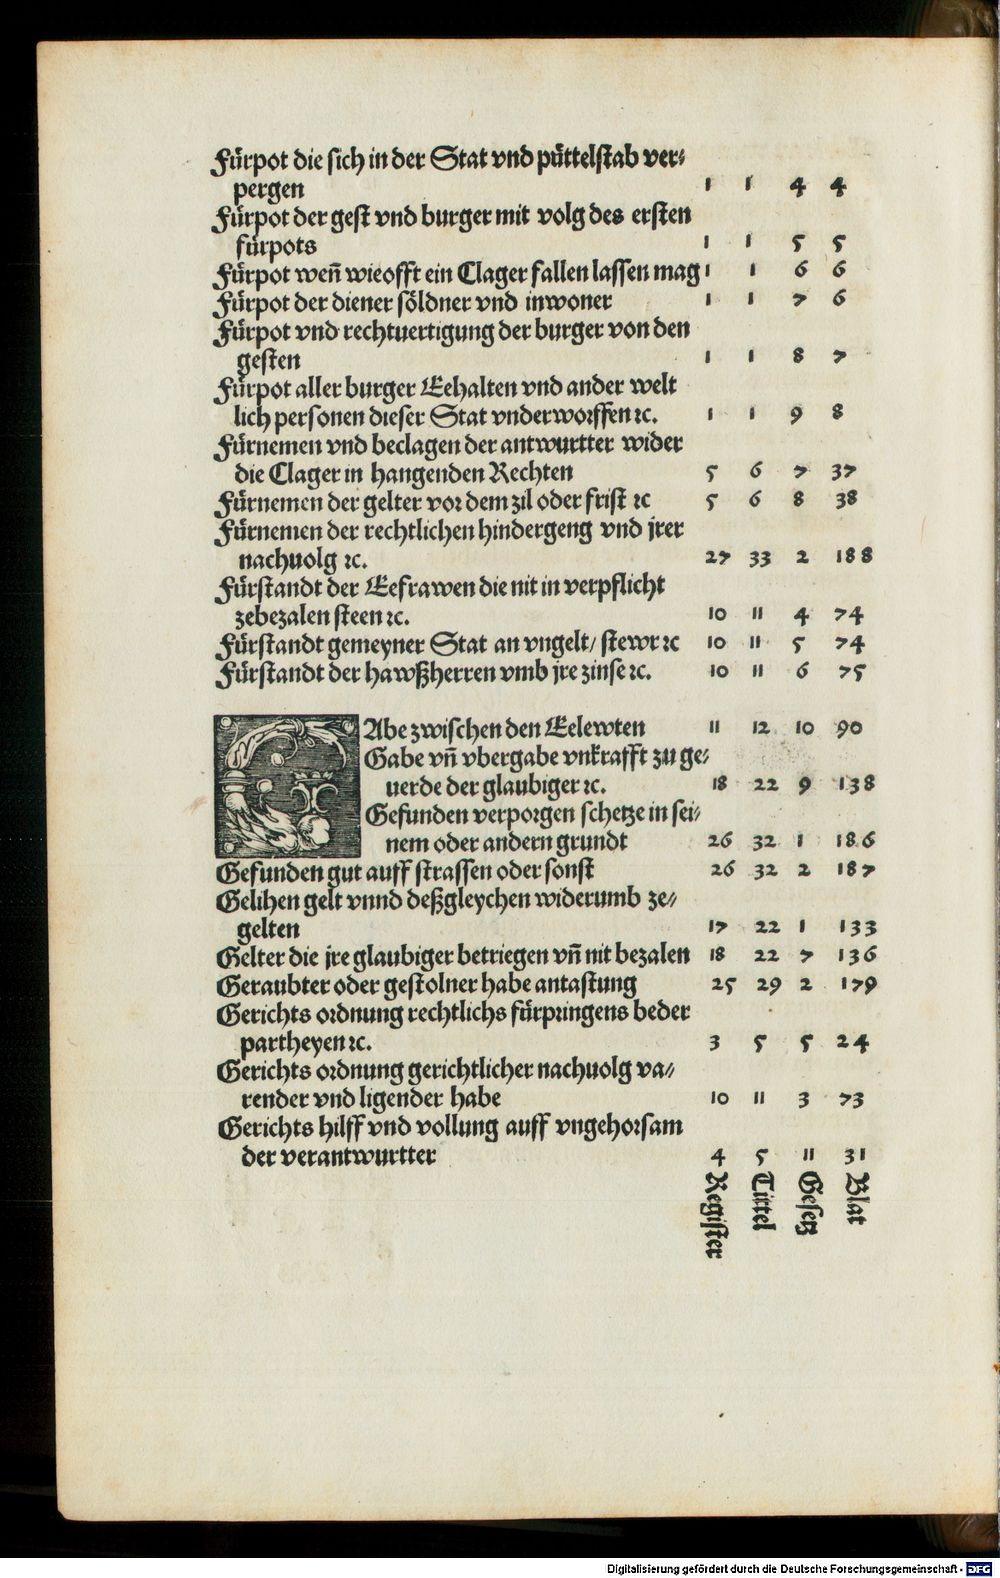 Fürpot die sich in der Stat vnd püttelstab ver⸗
pergen 1 1 4 4
Fürpot der gest vnd burger mit volg des ersten
fürpots 1 1 5 5
Fürpot weñ wieofft ein Clager fallen lassen mag 1 1 6 6
Fürpot der diener söldner vnd inwoner 1 1 7 6
Fürpot vnd rechtuertigung der burger von den
gesten 1 1 8 7
Fürpot aller burger Eehalten vnd ander welt
lich personen dieser Stat vnderworffen ꝛc. 1 1 9 8
Fürnemen vnd beclagen der antwurtter wider
die Clager in hangenden Rechten 5 6 7 37
Fürnemen der gelter vor dem zil oder frist ꝛc 5 6 8 38
Fürnemen der rechtlichen hindergeng vnd jrer
nachuolg ꝛc. 27 33 2 188
Fürstandt der Eefrawen die nit in verpflicht
zebezalen steen ꝛc. 10 11 4 74
Fürstandt gemeyner Stat an vngelt/ stewr ꝛc 10 11 5 74
Fürstandt der hawßherren vmb jre zinse ꝛc. 10 11 6 75
GAbe zwischen den Eelewten 11 12 10 90
Gabe vñ vbergabe vnkrafft zu ge⸗
uerde der glaubiger ꝛc. 18 22 9 138
Gefunden verporgen schetze in sei⸗
nem oder andern grundt 26 32 1 186
Gefunden gut auff strassen oder sonst 26 32 2 187
Gelihen gelt vnnd deßgleychen widerumb ze⸗
gelten 17 22 1 133
Gelter die jre glaubiger betriegen vñ nit bezalen 18 22 7 136
Geraubter oder gestolner habe antastung 25 29 2 179
Gerichts ordnung rechtlichs fürpringens beder
partheyen ꝛc. 3 5 5 24
Gerichts ordnung gerichtlicher nachuolg va⸗
render vnd ligender habe 10 11 3 73
Gerichts hilff vnd vollung auff vngehorsam
der verantwurtter 4 5 11 31
Register Tittel Gesetz Blat
Digitalisierung gefördert durch die Deutsche Forschungsgemeinschaft - DFG